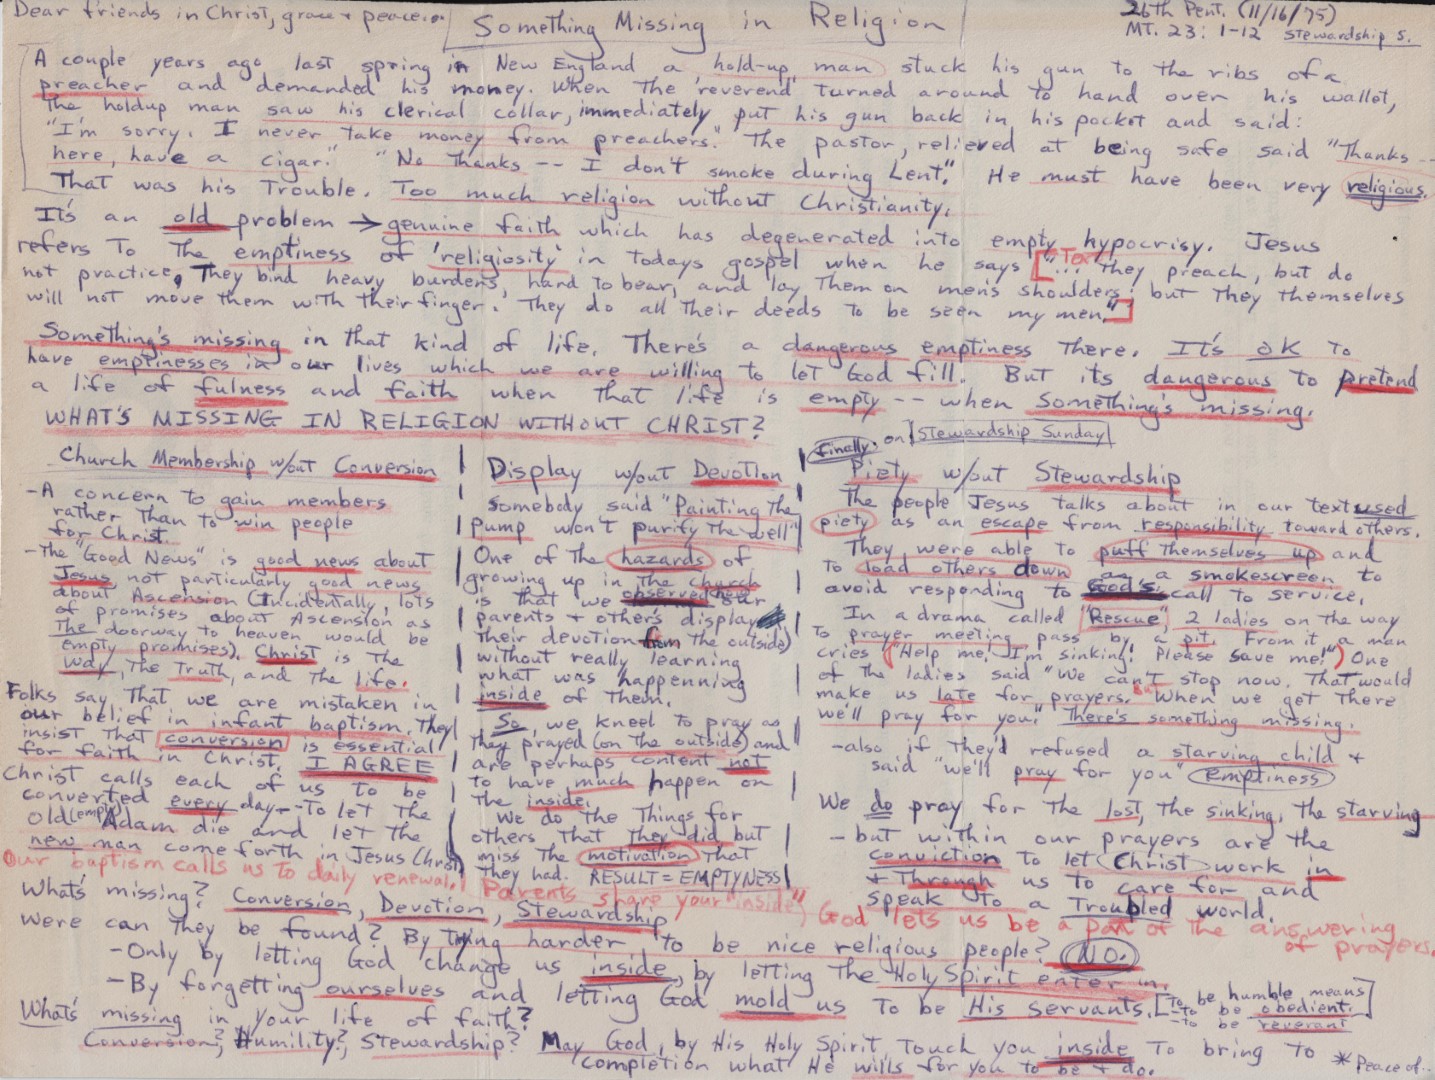 Dear friends in Christ, grace + peace...
Something Missing in Religion
26th Pent. (11/16/75)
MT. 23: 1-12 Stewardship S.
A couple years ago last spring in New England a hold-up man stuck his gun to the ribs of a
preacher and demanded his money. When the 'reverend' turned around to hand over his wallet,
the holdup man saw his clerical collar, immediately put his gun back in his pocket and said:
"I'm sorry. I never take money from preachers." The pastor, relieved at being safe said "Thanks --
here, have a cigar." "No thanks -- I don't smoke during Lent." He must have been very religious.
That was his trouble. Too much religion without Christianity.
It's an old problem → genuine faith which has degenerated into empty hypocrisy. Jesus
refers to the emptiness of 'religiosity' in todays gospel when he says ["... They preach, but do
Text
not practice. They bind heavy burdens, hard to bear, and lay them on men's shoulders; but they themselves
will not move them with their finger. They do all their deeds to be seen my men."]
Something's missing in that kind of life. There's a dangerous emptiness there. It's OK to
have emptinesses in our lives which we are willing to let God fill. But its dangerous to pretend
a life of fulness and faith when that life is empty -- when something's missing.
WHAT'S MISSING IN RELIGION WITHOUT CHRIST?
Church Membership w/out Conversion
- A concern to gain members
rather than to win people
for Christ.
- The "Good News" is good news about
Jesus not particularly good news
about Ascension (Incidentally, lots
of promises about Ascension as
the doorway to heaven would be
empty promises). Christ is the
way, the truth, and the life.
Folks say that we are mistaken in
our belief in infant baptism. They
insist that conversion is essential
for faith in Christ. I AGREE
Christ calls each of us to be
converted every day -- to let the
old (empty) Adam die and let the
new man come forth in Jesus Christ
Our baptism calls us to daily renewal.
Display w/out Devotion
Somebody said "Painting the
pump won't purify the well"
One of the hazards of
growing up in the church
is that we observed how our
parents + others display
their devotion (from the outside)
without really learning
what was happenning
inside of them.
So, we kneel to pray as
they prayed (on the outside) and
are perhaps content not
to have much happen on
the inside.
We do the things for
others that they did but
miss the motivation that
they had. RESULT = EMPTYNESS
Parents share your "inside"
finally. on Stewardship Sunday
Piety w/out Stewardship
The people Jesus talks about in our text used
piety as an escape from responsibility toward others.
They were able to puff themselves up and
to load others down as a smokescreen to
avoid responding to God's call to service.
In a drama called "Rescue", 2 ladies on the way
to prayer meeting pass by a pit. From it a man
cries ("Help me! I'm sinking! Please save me!") One
of the ladies said "We can't stop now. That would
make us late for prayers. But When we get there
we'll pray for you." There's something missing.
- also if they'd refused a starving child +
said "we'll pray for you" (emptiness)
We do pray for the lost, the sinking, the starving
- but within our prayers are the
conviction to let Christ work in
+ through us to care for and
speak to a troubled world.
God lets us be a part of the answering
of prayers.
What's missing? Conversion, Devotion, Stewardship
Were can they be found? By trying harder to be nice religious people? NO.
- Only by letting God change us inside, by letting the Holy Spirit enter in.
- By forgetting ourselves and letting God mold us to be His servants.
[To be humble means
- to be obedient.
- to be reverant]
What's missing in your life of faith?
Conversion?, Humility?, Stewardship? May God, by His Holy Spirit, touch you inside to bring to
completion what He wills for you to be + do.
* Peace of...